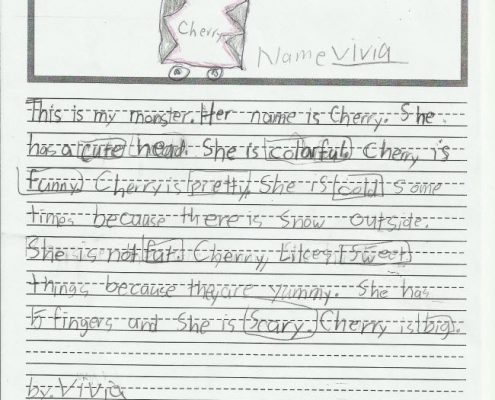 Cherry
Name Vivia
This is my monster. Her name is Cherry. She
has a cute head. She is colorful. Cherry is
funny. Cherry is pretty. She is cold some
times because there is snow outside.
She is not fat. Cherry, Likes, Sweet
things because they are yummy. She has
5 fingers and She is Scary. Cherry is big.
by. Vivia